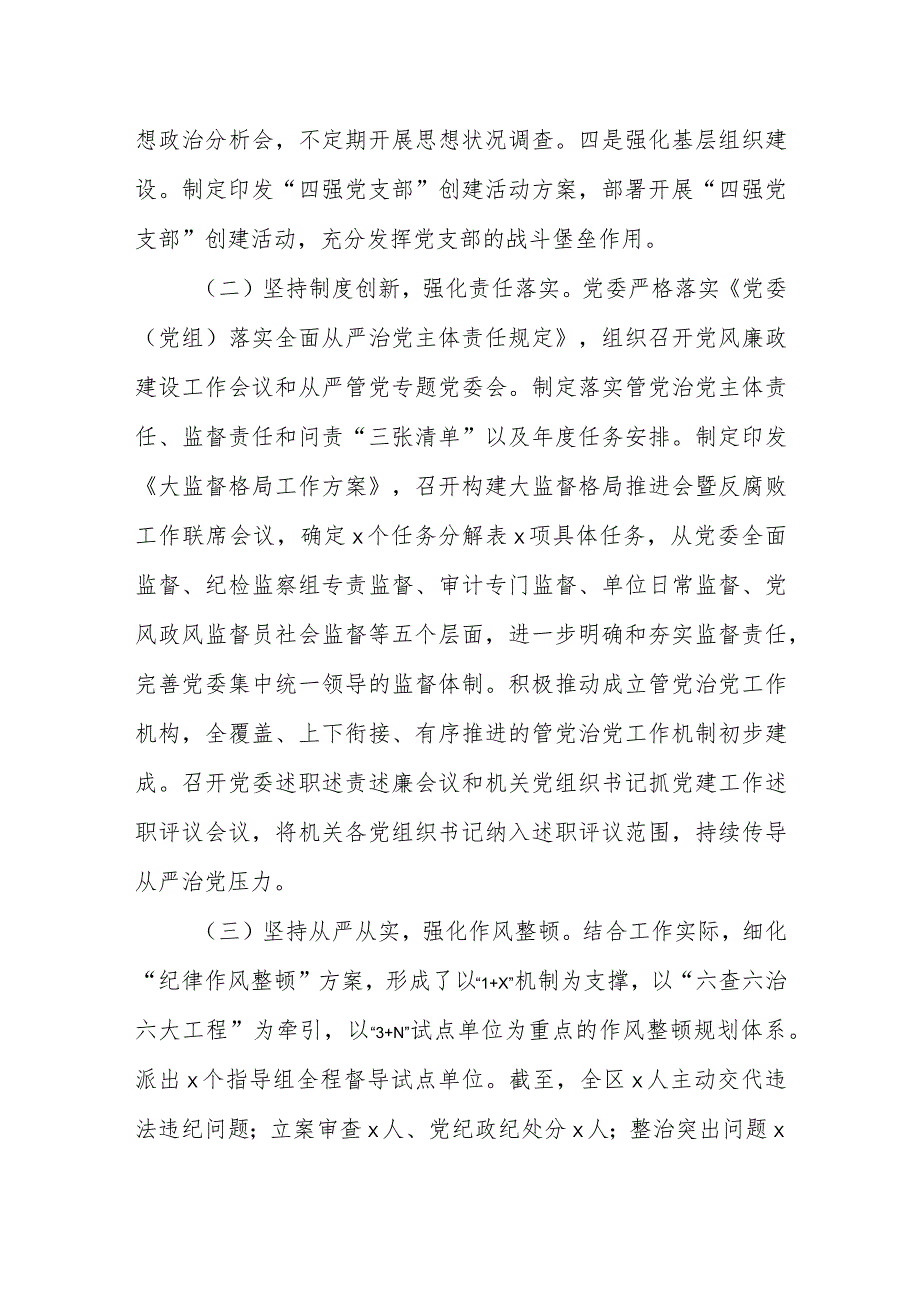 想政治分析会，不定期开展思想状况调查。四是强化基层组织建
设。制定印发“四强党支部”创建活动方案，部署开展“四强党
支部”创建活动，充分发挥党支部的战斗堡垒作用。
（二）坚持制度创新，强化责任落实。党委严格落实《党委
（党组）落实全面从严治党主体责任规定》，组织召开党风廉政
建设工作会议和从严管党专题党委会。制定落实管党治党主体责
任、监督责任和问责“三张清单”以及年度任务安排。制定印发
《大监督格局工作方案》，召开构建大监督格局推进会暨反腐败
工作联席会议，确定x个任务分解表x项具体任务，从党委全面
监督、纪检监察组专责监督、审计专门监督、单位日常监督、党
风政风监督员社会监督等五个层面，进一步明确和夯实监督责任，
完善党委集中统一领导的监督体制。积极推动成立管党治党工作
机构，全覆盖、上下衔接、有序推进的管党治党工作机制初步建
成。召开党委述职述责述廉会议和机关党组织书记抓党建工作述
职评议会议，将机关各党组织书记纳入述职评议范围，持续传导
从严治党压力。
（三）坚持从严从实，强化作风整顿。结合工作实际，细化
“纪律作风整顿”方案，形成了以“1+X”机制为支撑，以“六查六治
六大工程”为牵引，以“3+N”试点单位为重点的作风整顿规划体系。
派出x个指导组全程督导试点单位。截至，全区x人主动交代违
法违纪问题；立案审查x人、党纪政纪处分x人；整治突出问题x